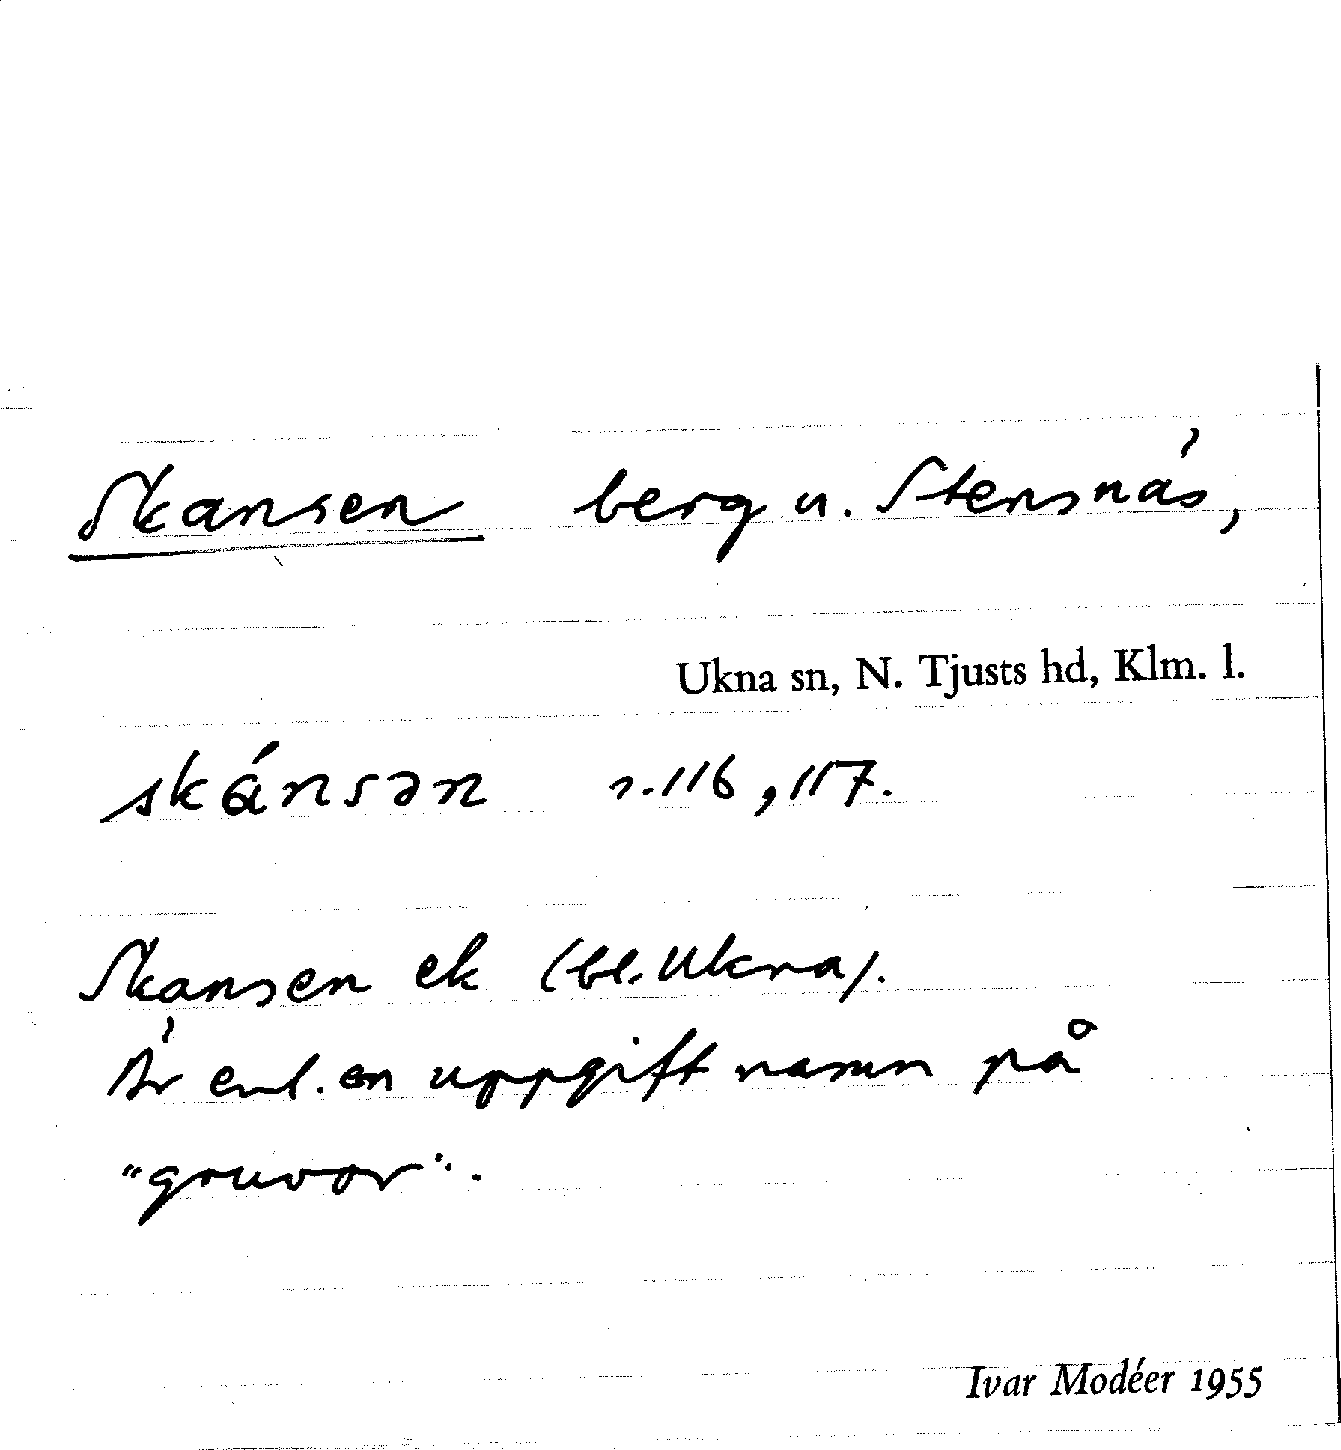 Skansen berg u. Stensnäs,
Ukna sn, N. Tjusts hd, Klm. l.
skánsən s. 116, 117.
Skansen ek (bl. Ukna).
Är enl. en uppgift namn på
"gruvor".
Ivar Modéer 1955